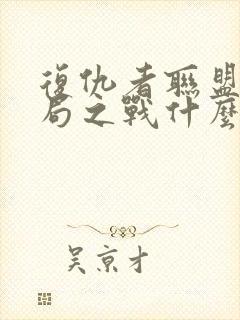 復仇者聯盟
局之戰什麼
吳京才